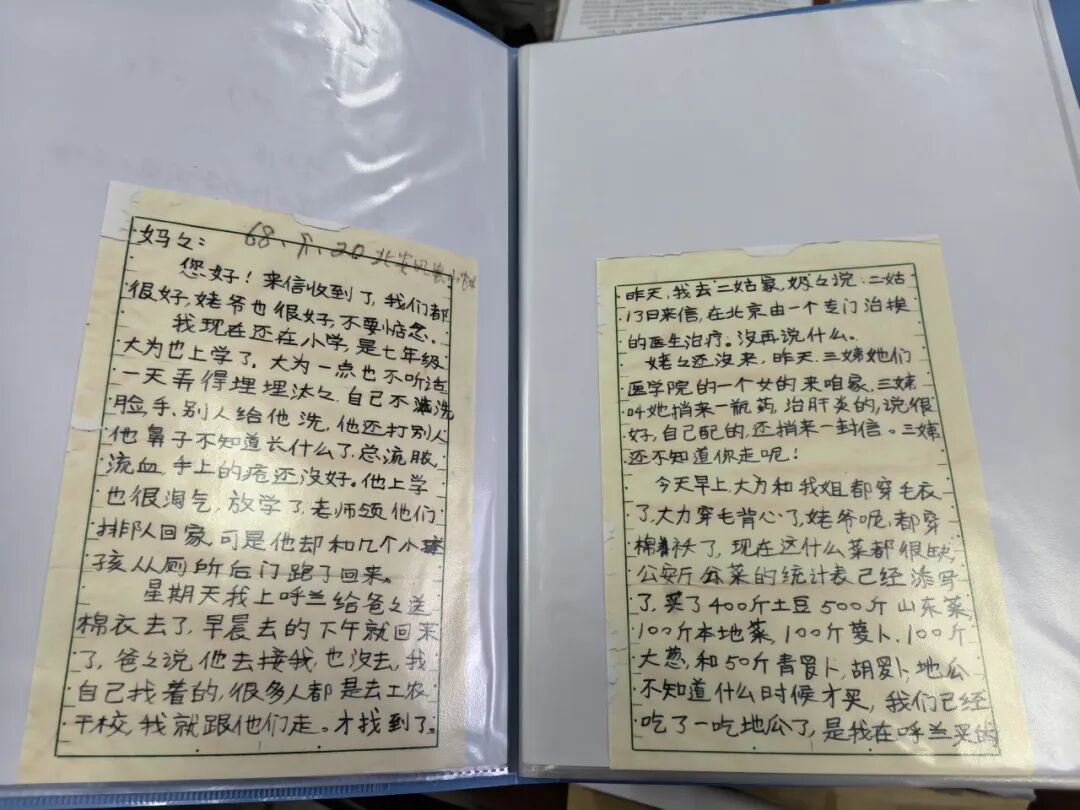 妈々：
68、9、20 北安
您好！来信收到了，我们都
很好，姥爷也很好，不要惦念。
我现在还在小学，是七年级
大为也上学了，大为一点也不听话
一天弄得埋埋汰々，自己不洗
脸，手，别人给他洗，他还打别人
他鼻子不知道长什么了，总流脓
流血，手上的疮还没好。他上学
也很淘气，放学了，老师领他们
排队回家，可是他却和几个小
孩从厕所后门跑了回来。
星期天我上呼兰给爸々送
棉衣去了，早晨去的下午就回来
了，爸々说他去接我，也没去，我
自己找着的，很多人都是去工农
干校，我就跟他们走。才找到了。
昨天，我去二姑家，奶々说：二姑
13日来信，在北京由一个专门治
的医生治疗。没再说什么。
姥々还没来，昨天，三姨她们
医学院的一个女的来咱家，三姨
叫她捎来一瓶药，治肝炎的，说很
好，自己配的，还捎来一封信。三姨
还不知道你走呢！
今天早上，大为和我姐都穿毛衣
了，大力穿毛背心了，姥爷呢，都穿
棉裤了，现在这什么菜都很缺，
公安厅分菜的统计表已经添写
了，买了400斤土豆500斤山东菜，
100斤本地菜，100斤萝卜，100斤
大葱，和50斤青萝卜，胡萝卜，地瓜
不知道什么时候才买，我们已经
吃了一吃地瓜了，是我在呼兰买的